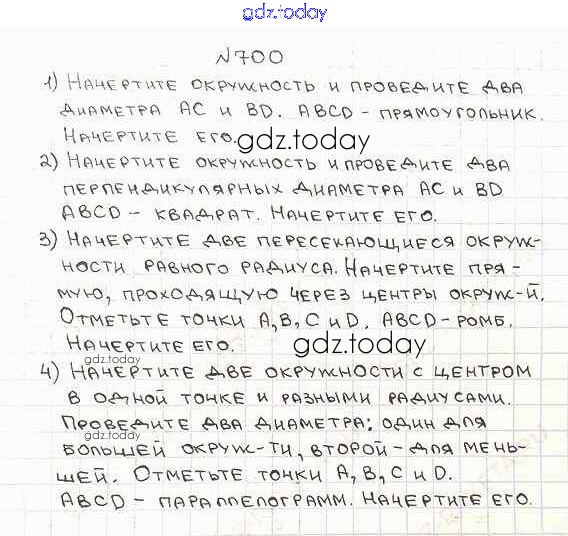 gdz.today
№700
1) Начертите окружность и проведите два
диаметра AC и BD. ABCD - прямоугольник.
Начертите его.
gdz.today
2) Начертите окружность и проведите два
перпендикулярных диаметра AC и BD
ABCD - квадрат. Начертите его.
3) Начертите две пересекающиеся окруж-
ности равного радиуса. Начертите пря-
мую, проходящую через центры окруж-й.
Отметьте точки A, B, C и D. ABCD - ромб.
Начертите его.
gdz.today
gdz.today
4) Начертите две окружности с центром
в одной точке и разными радиусами.
Проведите два диаметра: один для
gdz.today
большей окруж-ти, второй - для мень-
шей. Отметьте точки A, B, C и D.
ABCD - параллелограмм. Начертите его.